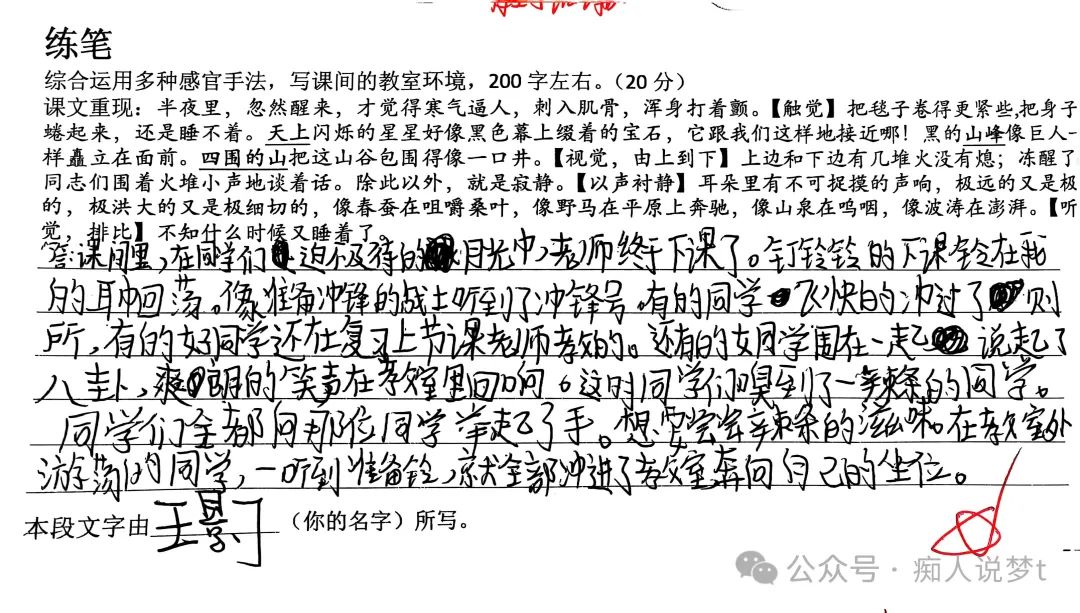 练笔
综合运用多种感官手法，写课间的教室环境，200 字左右。（20 分）
课文重现：半夜里，忽然醒来，才觉得寒气逼人，刺入肌骨，浑身打着颤。【触觉】把毯子卷得更紧些,把身子
蜷起来，还是睡不着。天上闪烁的星星好像黑色幕上缀着的宝石，它跟我们这样地接近哪！黑的山峰像巨人一
样矗立在面前。四围的山把这山谷包围得像一口井。【视觉，由上到下】上边和下边有几堆火没有熄；冻醒了
同志们围着火堆小声地谈着话。除此以外，就是寂静。【以声衬静】耳朵里有不可捉摸的声响，极远的又是极
的，极洪大的又是极细切的，像春蚕在咀嚼桑叶，像野马在平原上奔驰，像山泉在呜咽，像波涛在澎湃。【听
觉，排比】不知什么时候又睡着了。
答课间里，在同学们迫不及待的目光中，老师终于下课了。钉铃铃的下课铃在我
的耳中回荡。像准备冲锋的战士听到了冲锋号。有的同学飞快的冲过了厕
所，有的好同学还在复习上节课老师教的。还有的女同学围在一起说起了
八卦，爽朗的笑声在教室里回响。这时同学们嗅到了一辣条的同学。
同学们全都向那位同学举起了手。想要尝尝辣条的滋味。在教室外
游荡的同学，一听到准备铃，就全部冲进了教室奔向自己的坐位。
本段文字由王景（你的名字）所写。
公众号·痴人说梦t